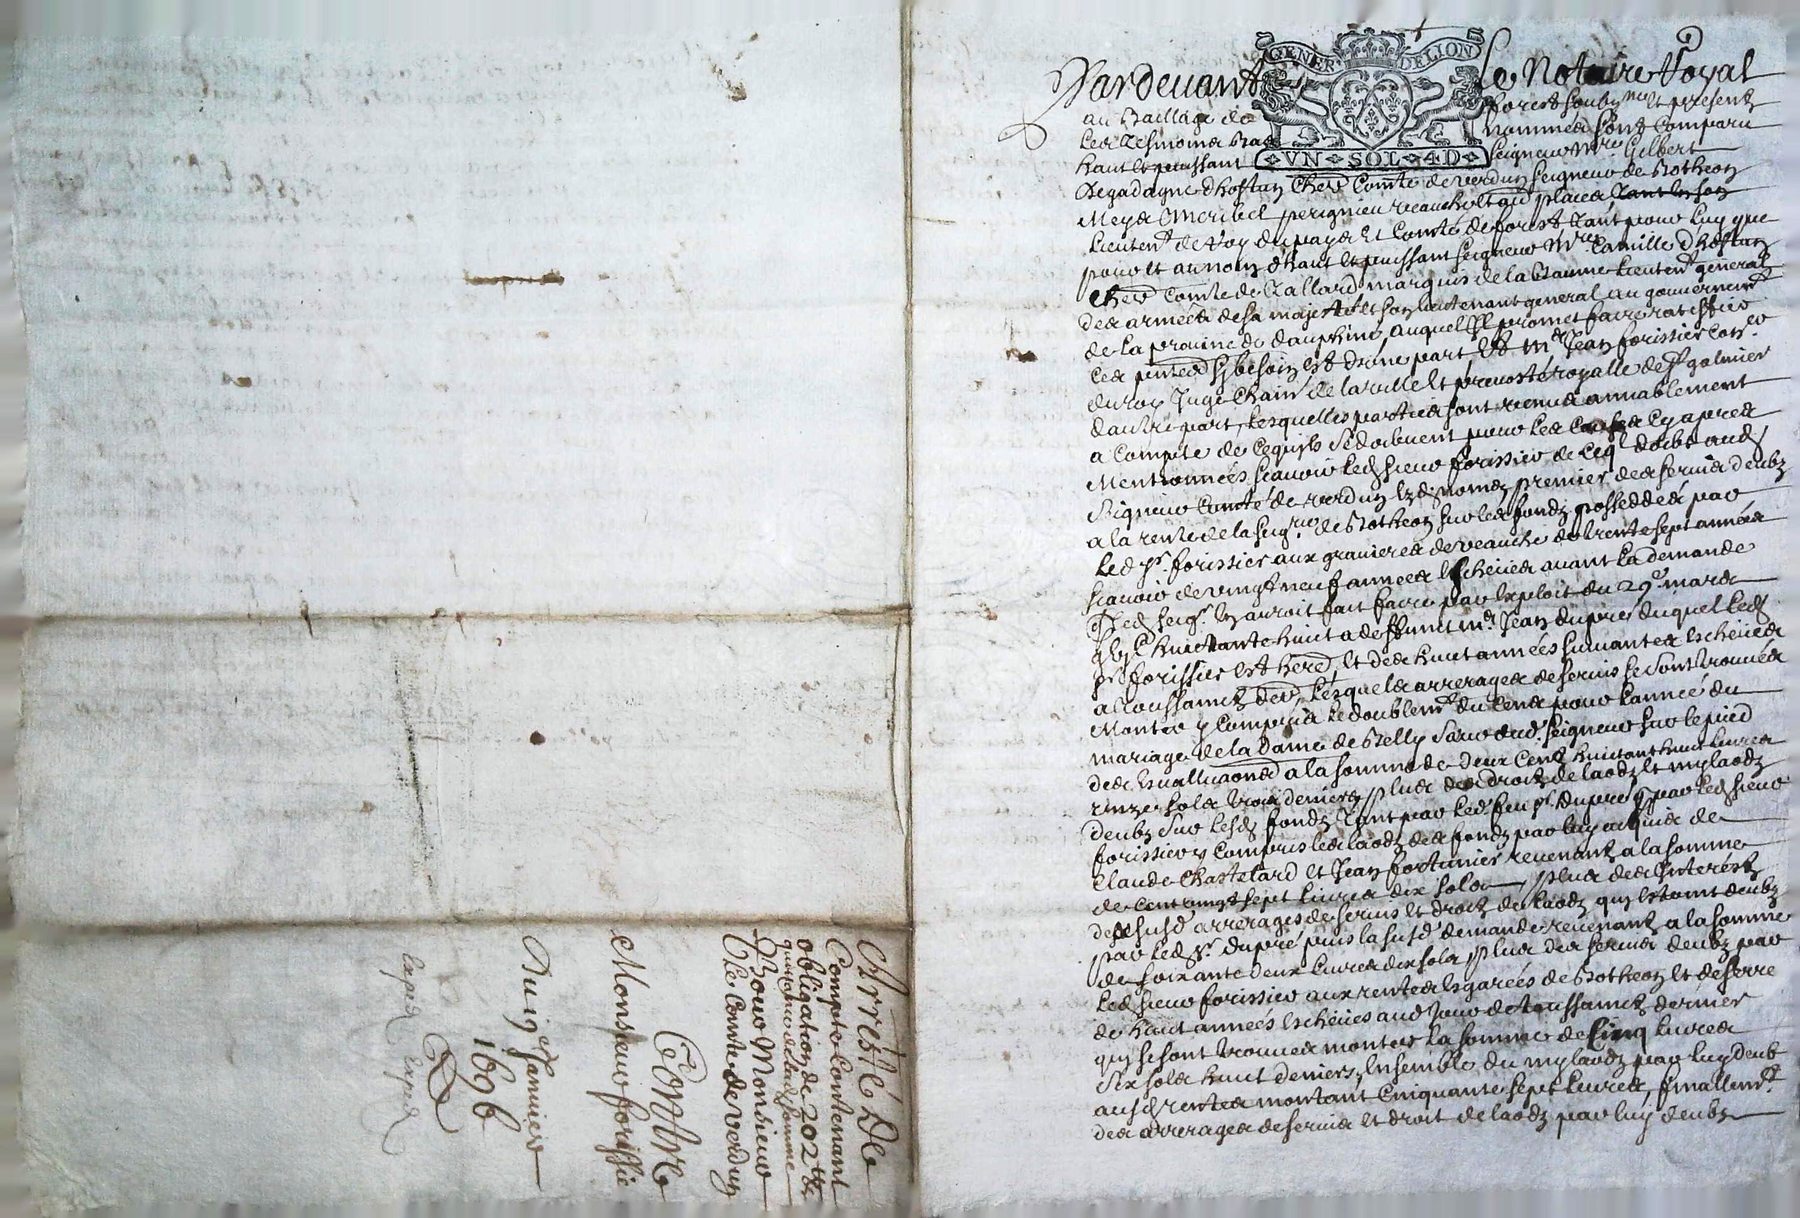 Arresté De
Compte Contenant
obligation de 202 lt &
quittance de lad somme
Pour Monsieur
Le Comte de Verdun
Contre
Monsieur forissier
Du 19e Janvier
1696
Exped
Exped
GENER DE LION
VN SOL 4D
Pardevant Le Notaire Royal
au Baillage de forest soubzne et presentz
Les Tesmoins Bas nommés sont Comparu
haut et puissant seigneur Mre Gilbert
De gadagne d'hostun Cher Comte de verdun seigneur de Botheon
Meys Miribel perignieu et aud places
Lieutent de Roy du pays et Comté de forest tant pour Luy que
pour et au nom d'haut et puissant seigneur Mre Camille d'hostun
Cher Comte de Tallard marquis de la Baume Lieutent general
des armées de sa majesté et son lieutenant general au gouvernemt
de La province de dauphiné, auquel Il promet faire ratiffier
Ces pntes sy besoin est d'une part, Et Mre Jean forissier Conser
du roy Juge Chain de la ville et prevosté royalle de St galmier
d'autre part, Lesquelles parties sont venues amiablement
a Compte de Cequils Se doibvent pour Les Causes Cy apres
Mentionnées scavoir Led sieur forissier de Ceql doibt aud
Seigneur Comte de verdun premier des servis deubz
a la rente de la seigrie de Botheon sur les fondz possedés par
Led Sr forissier aux gravieres de veauche de trente sept années
scavoir de vingt neuf années Escheües avant La demande
Led seigr En auroit fait faire par Exploit du 29e mars
huictante huict a deffunct Mre Jean dupré duquel Led
Sr forissier est hered et des huict années suivantes Escheües
a Toussainctz der, Lesquels arrerages de servis se sont trouvés
Monter y Compris Le doublemt du Cens pour L'année du
mariage de la Dame de Selly Sœur dud seigneur sur le pied
des Evalluaons a la somme de Deux Cent huictant huict Livres
unze sols trois deniers, plus des droitz de laodz et mylaodz
deubz sur lesd fondz tant par Led feu Sr dupré que par Led sieur
forissier y Compris les laodz des fondz par luy acquis de
Claude Chastelard et Jean fortunier revenantz a la somme
de Cent vingt sept Livres dix sols, plus des Interestz
desd susd arrerages de servis et droitz de laodz qui Estoint deubz
par Led Sr dupré puis la susd demande revenantz a la somme
de soixante deux Livres dix sols, plus des servis deubz par
Led sieur forissier aux rentes Esgarées de Botheon et de serre
de huict années Escheües aud Jour de toussainctz dernier
qui se sont trouvés monter La somme de Cinq Livres
Six sols huict deniers, Ensemble du mylaodz par luy deub
ausd rentes montant Cinquante sept Livres, finallemt
des arrerages de servis et droit de laodz par luy deubz